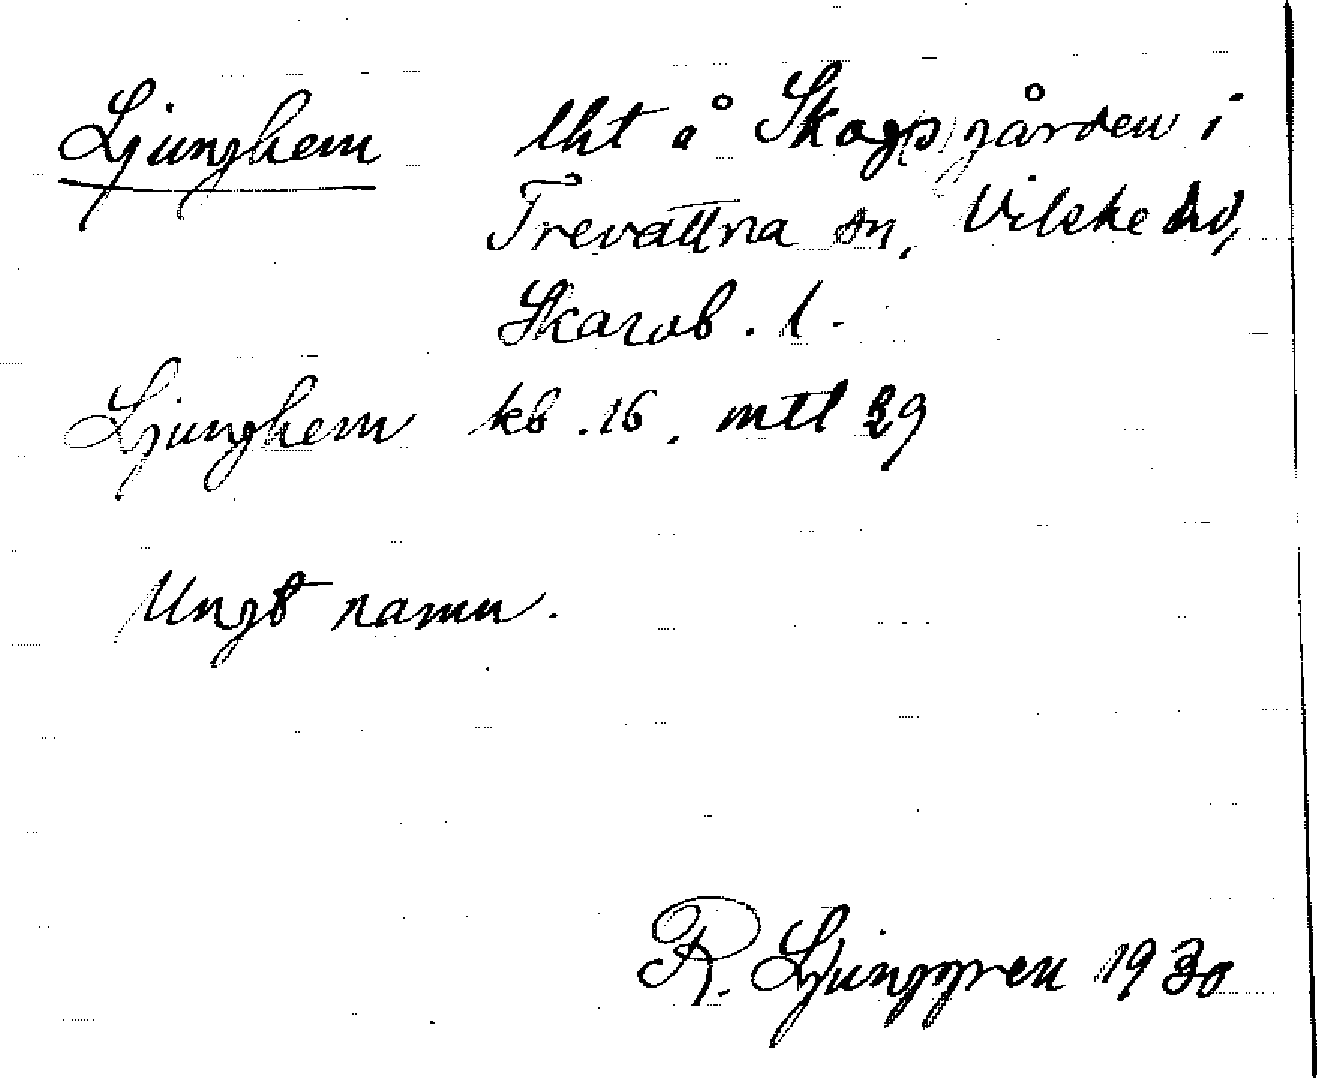 Ljunghem lht å Skog(s)gården i
Trevattna sn, Vilske hd,
Skarab. l.
Ljunghem kb. 16. mtl 29
Ungt namn.
R. Ljunggren 1930